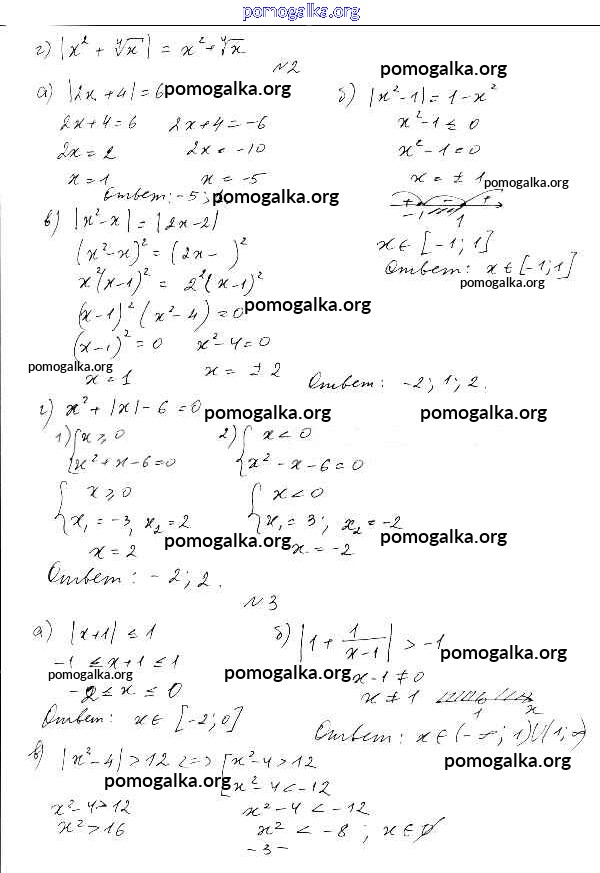 pomogalka.org
г) |x² + ∜x| = x² + ∜x
N2
pomogalka.org
а) |2x + 4| = 6 pomogalka.org
2x + 4 = 6    2x + 4 = -6
2x = 2    2x = -10
x = 1    x = -5
Ответ: -5; pomogalka.org
б) |x² - 1| = 1 - x²
x² - 1 ≤ 0
x² - 1 = 0
x = ± 1 pomogalka.org
+ - +
-1 1
x ∈ [-1; 1]
Ответ: x ∈ [-1; 1]
pomogalka.org
в) |x² - x| = |2x - 2|
(x² - x)² = (2x - )²
x²(x - 1)² = 2²(x - 1)²
(x - 1)² (x² - 4) = 0 pomogalka.org
(x - 1)² = 0    x² - 4 = 0
pomogalka.org
x = 1    x = ± 2
Ответ: -2; 1; 2.
г) x² + |x| - 6 = 0 pomogalka.org pomogalka.org
1) { x ≥ 0    2) { x < 0
x² + x - 6 = 0    x² - x - 6 = 0
{ x ≥ 0    { x < 0
x₁ = -3, x₂ = 2    x₁ = 3; x₂ = -2
x = 2 pomogalka.org x = -2 pomogalka.org
Ответ: -2; 2.
N3
а) |x + 1| ≤ 1
-1 ≤ x + 1 ≤ 1
pomogalka.org
-2 ≤ x ≤ 0
Ответ: x ∈ [-2; 0]
б) |1 + 1/(x - 1)| > -1
pomogalka.org
pomogalka.org x - 1 ≠ 0
x ≠ 1
1 x
Ответ: x ∈ (-∞; 1)U(1; ∞)
в) |x² - 4| > 12 <=> [ x² - 4 > 12
pomogalka.org x² - 4 < -12
pomogalka.org
x² - 4 > 12    x² - 4 < -12
x² > 16    x² < -8; x ∈ ∅
pomogalka.org
- 3 -